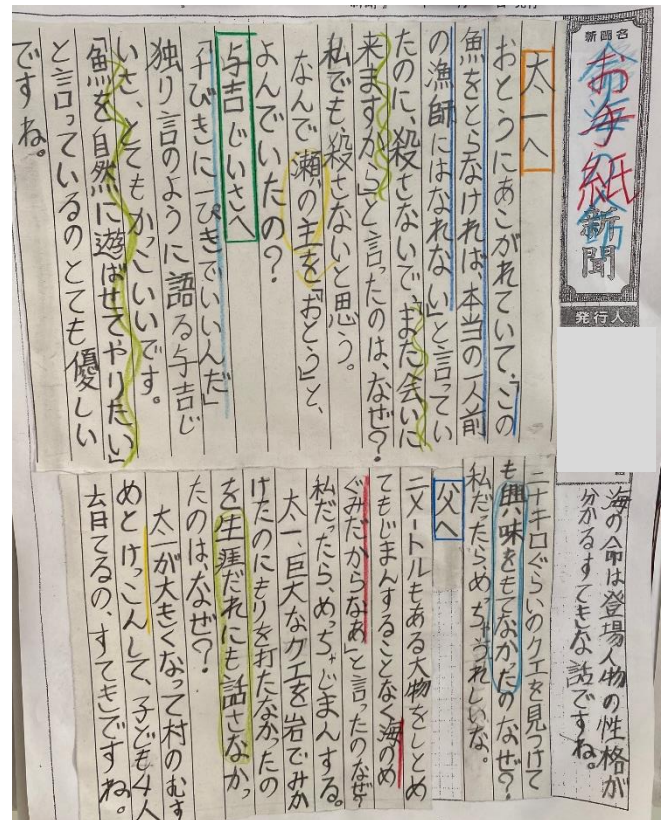 新聞名
お海紙新聞
発行人
太一へ
おとうにあこがれていて、「この
魚をとらなければ、本当の一人前
の漁師にはなれない」と言ってい
たのに、殺さないで、「また会いに
来ますから」と言ったのは、なぜ?
私でも殺さないと思う。
なんで瀬の主を「おとう」と、
よんでいたの?
与吉じいさへ
「千びきに一ぴきでいいんだ」
独り言のように語る与吉じ
いさ、とてもかっこいいです。
「魚を自然に遊ばせてやりたい」
と言っているのとても優しい
ですね。
海の命は登場人物の性格が
分かるすてきな話ですね。
二十キロぐらいのクエを見つけて
も興味をもてなかったのなぜ?
私だったらめちゃうれしいな。
父へ
二メートルもある大物をしとめ
てもじまんすることなく「海のめ
ぐみだからなあ」と言ったのなぜ?
私だったら、めっちゃじまんする。
太一、巨大なクエを岩でみか
けたのにもりを打たなかったの
を生涯だれにも話さなかっ
たのは、なぜ?
太一が大きくなって村のむす
めとけっこんして、子ども4人
育てるの、すてきですね。